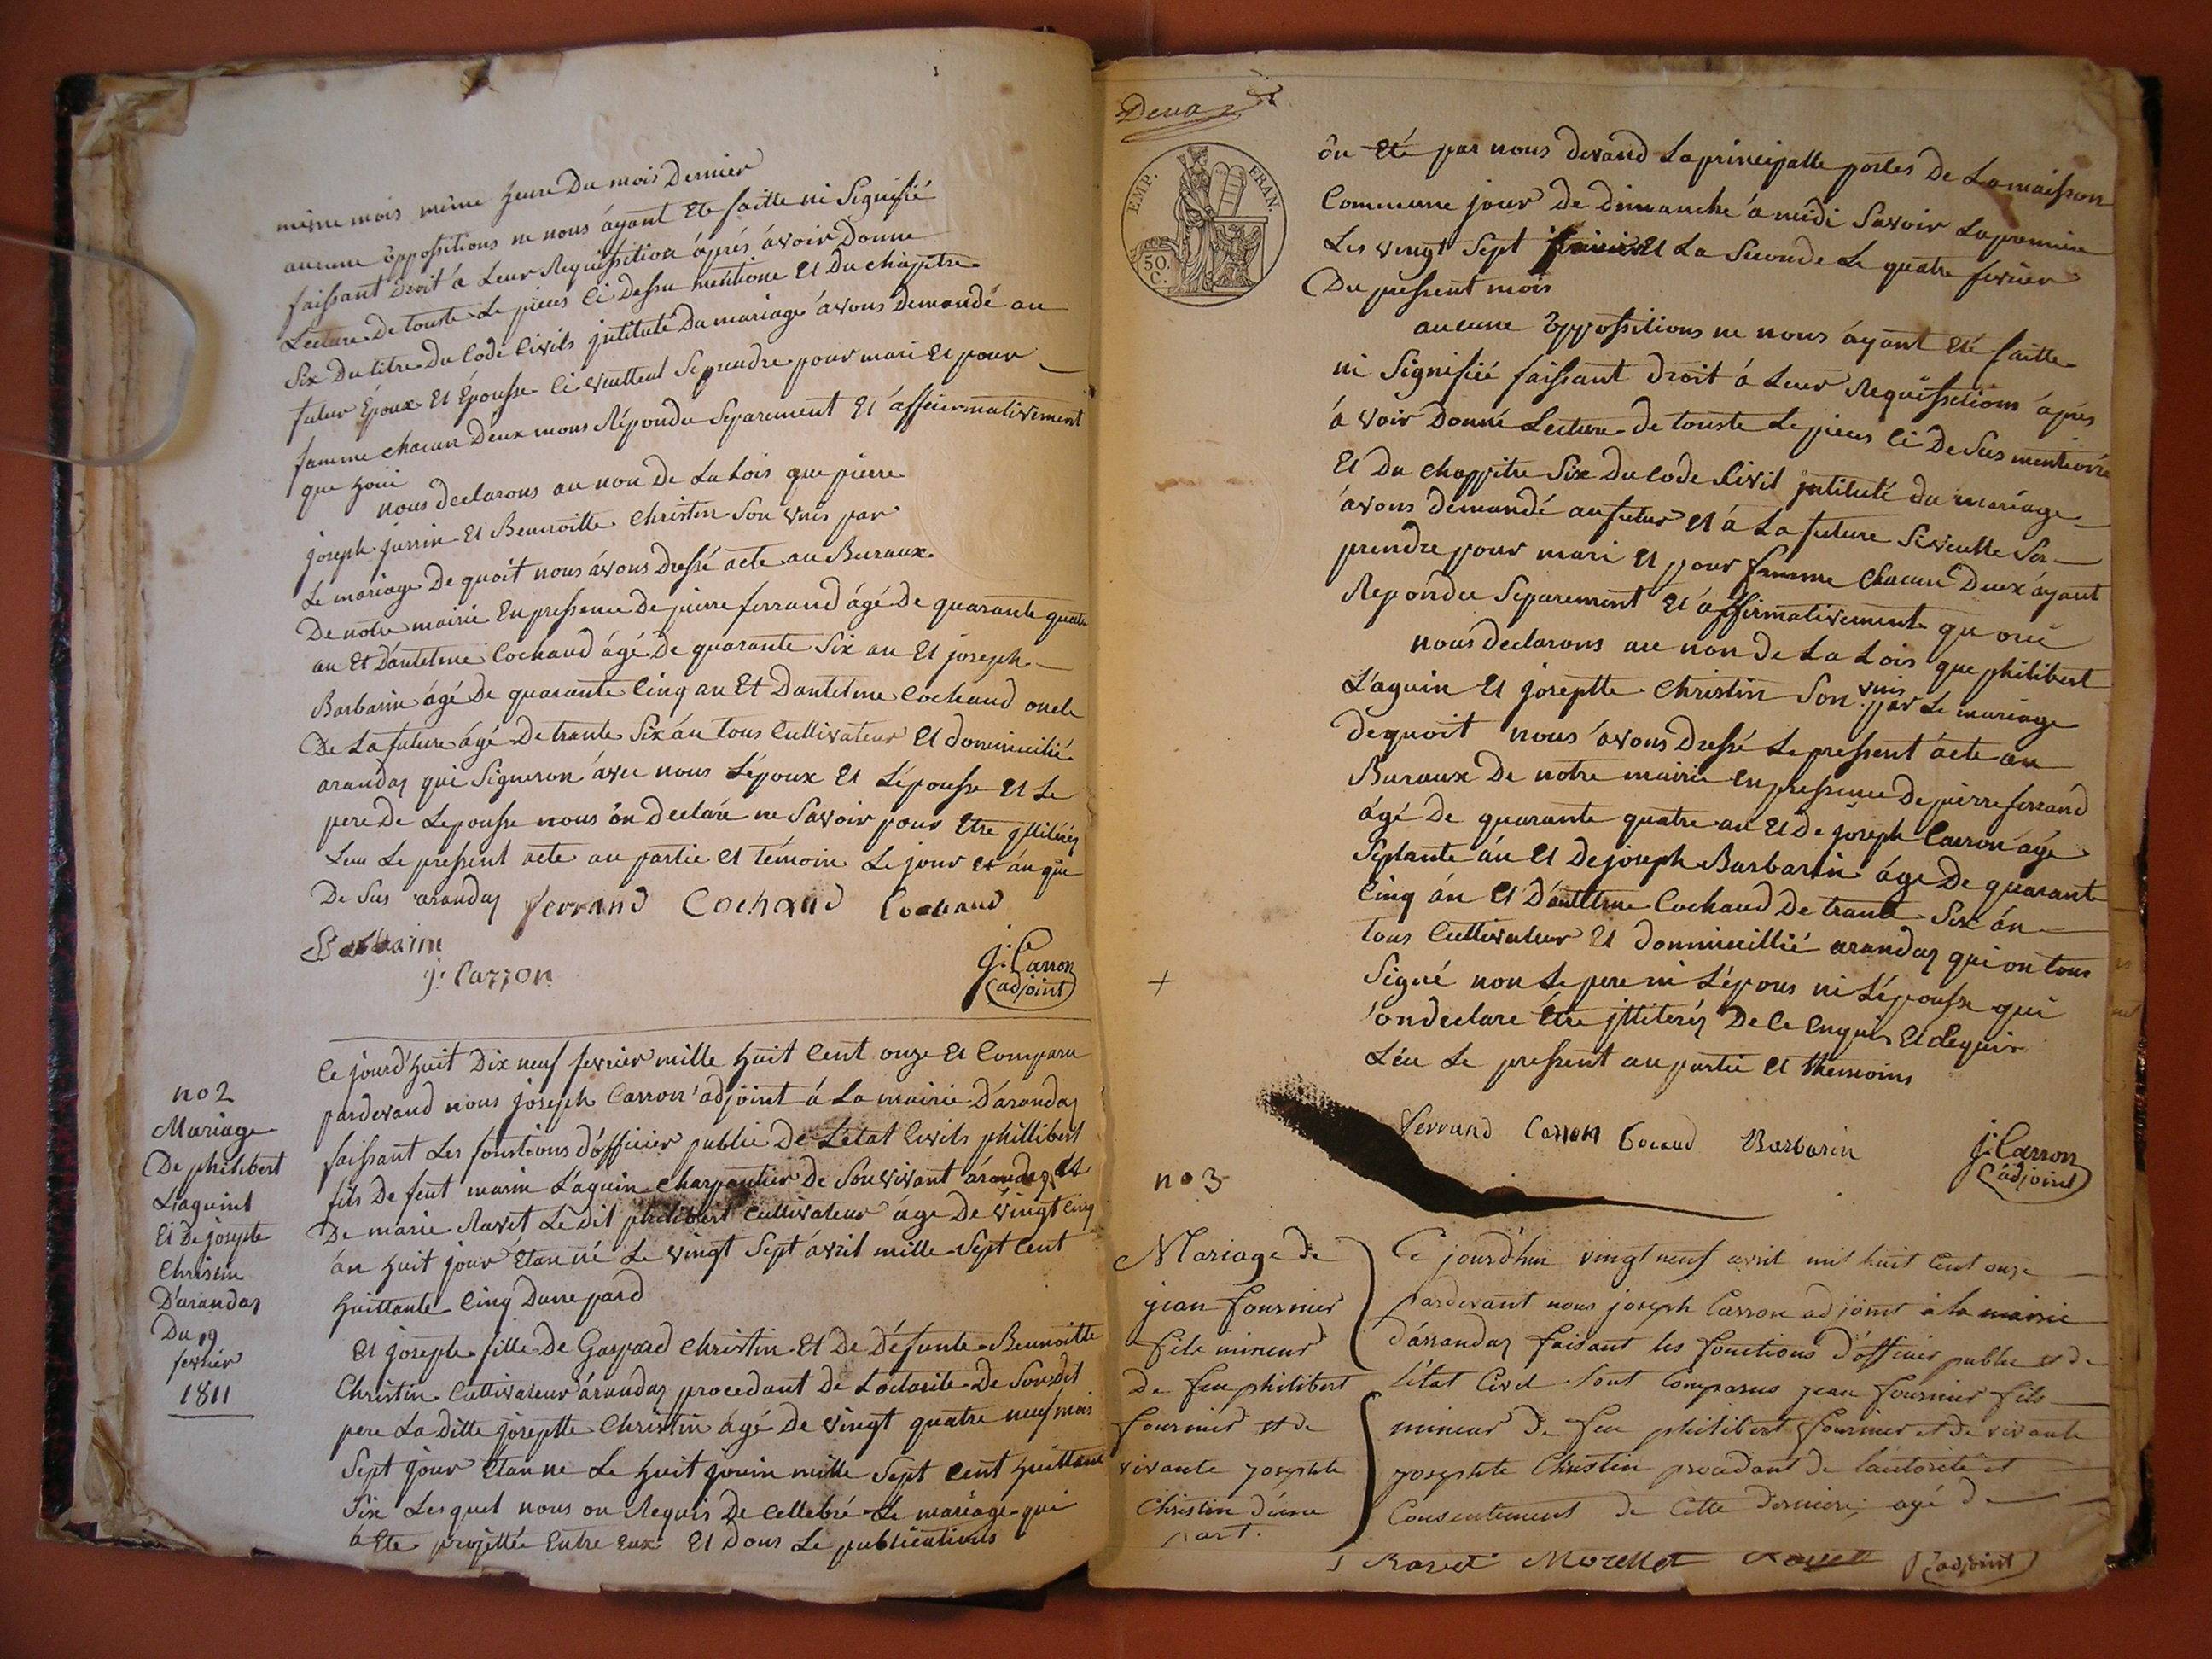 même mois même heure Du mois Dernier
aucune oppossitions ne nous áyant Ete faitte ni Signifié
faissant Droit á Leur Requissition áprés ávoir Donne
Lecture De toutte Le pieces Ci Dessu mentione Et Du chapitre
Six Du titre Du Code Civils jntitulé Du mariage ávons Demandé au
futur Époux Et Épousse Ci veullent Se prendre pour mari Et pour
famme chacun Deux mons Répondu Separement Et áffeirmativement
que houi
nous declarons au non De La Lois que pierre
joseph jurrin Et Bennoitte Christin Son vnis par
Le mariage De quoit nous ávons Dressé acte au Buraux
De notre mairie En pressence De pierre ferrand ágé De quarante quatre
an Et D'antelme Cochaud ágé De quarante Six an Et joseph
Barbarin ágé De quarante Cinq an Et Dantelme Cochaud oncle
De La future ágé De trante Six án tous Cultivateur Et dommicilié
arandas qui Signeron ávec nous L'époux Et L'épousse Et Le
pere De Lepousse nous ón Declaré ne Savoir pour Etre jlliterés
Leu Le pressent acte au partie Et témoin Le jour Et án que
De Sus arandas ferrand Cochaud Cochaud
Barbarin
j. Carron
j. Carron
adjoint
no 2
Mariage
De philibert
Laguint
Et De josepte
Christin
D'arandas
Du 19
fevrier
1811
Ce jourd'huit Dix neuf fevrier mille huit Cent onze Et Comparu
pardevand nous joseph Carron adjoint á La mairie D'arandas
faissant Les fonctions d'officier public De L'état Civils phillibert
fils De feut marin L'aguin Charpantier De Son vivant árandas Et
De marie Ravet Le dit philibert Cultivateur áge De vingt Cinq
án huit jour Etan né Le vingt Sept ávril mille Sept Cent
huittante Cinq Dune pard
Et josepte fille De Gaspard Christin Et De Défunte Bennoitte
Christin Cultivateur árandas procedant De Lotorite De Sondit
pere La Ditte joseptte Christin ágé De vingt quatre neuf mois
Sept jour Etan ne Le huit jouin mille Sept Cent huittante
Six Lesquel nous on Requis De Cellebré Le mariage qui
á Ete projetté Entre Eux Et Dons Le publications
Deux
EMP. FRAN.
50.
C.
ôn Eté par nous devand La principalle portes De La maisson
Commune jour De Dimanche á midi Savoir La premiere
Les vingt Sept Et La Seconde Le quatre fevrier
Du pressent mois
aucune Oppossitions ne nous áyant Eté faitte
ni Signifié faissant Droit á Leur Requissitions áprés
á voir Donné Lecture de toutte Le pieces Ci De Sus mentioné
Et Du Chappitre Six Du Code Civil jntitulé du mariage
ávons demandé au futur Et á La future Si veulle Se
prendre pour mari Et pour famme Chacun Deux áyant
Repóndu Separement Et áffirmativement qu oui
nous declarons au non De La Lois que philibert
L'aguin Et joseptte Christin Son vnis par Le mariage
dequoit nous ávons Dressé Le pressent ácte au
Buraux De notre mairie en pressence De pierre ferrand
ágé De quarante quatre an Et De joseph Carron ágé
Septante án Et De joseph Barbarin áge De quarante
Cinq án Et D'antelme Cochaud De trante Six án
tous Cultivateur Et dommicillié arandas qui on tous
Signé non Le pere ni L'épous ni L'épousse qui
ón declaré Étre jlliterés De Ce Enquis Et Requis
Léu Le pressent au partie Et themoins
+
ferrand Carron Cocaud Barbarin
j. Carron
adjoint
no 3
Mariage de
jean fournier
fils mineur
De feu philibert
fournier et de
vivante josephte
Christin d'une
part.
Ce jourd'hui vingt neuf avril mil huit Cent onze
Pardevant nous joseph Carron adjoint à la mairie
d'arrandas faisant les fonctions d'officier public et de
l'état Civil Sont Comparus jean fournier fils
mineur De feu philibert fournier et De vivante
josephte Christin procedant de l'autorité et
Consentement de Cette derniere, agé de
Ravet Morellet Ravet adjoint